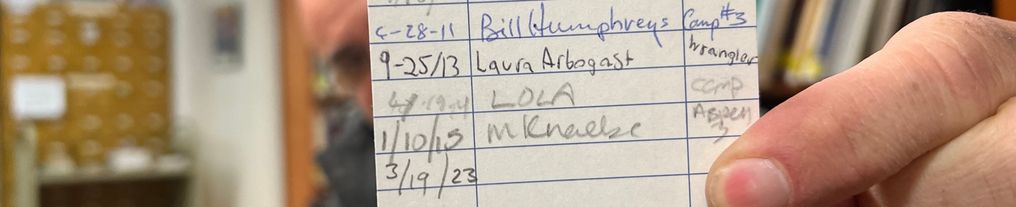 -28-11 Bill Humphreys Camp #3
9-25/13 Laura Arbogast Wrangler
LOLA camp
1/10/15 Aspen
3/19/23